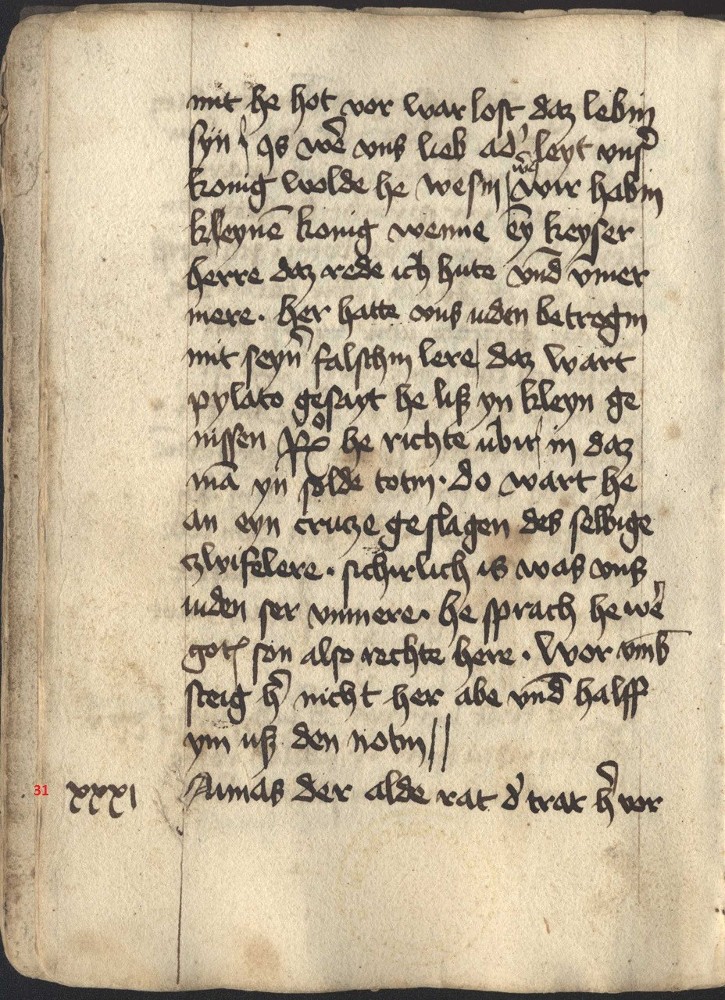 mit he hot vor war lost daz lebin
syn is wē vns lieb ad' leyt vns'
konig wolde he wesin wē wir habin
kleynē konig wenne ey̅ keyser
herre daz rede ich hute vn̄d vm̄er
mere. her hatte vns iuden betrogin
mit seyn' falschin lere daz wart
pylato gesayt he liß yn kleyn ge
nissen he richte ubir in daz
mā yn solde totin. do wart he
an eyn crutze geslagen des selbige
czwifelere. sichirlich is was vns
iuden ser vnmere. he sprach he wē
gotz son also rechte here. Wor vmb
steig h' nicht her abe vn̄d halff
ym uß den notin //
31 xxxi Annas der alde rat d' trat h' vor